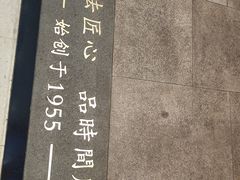 匠心
品時間
— 始创于1955 —